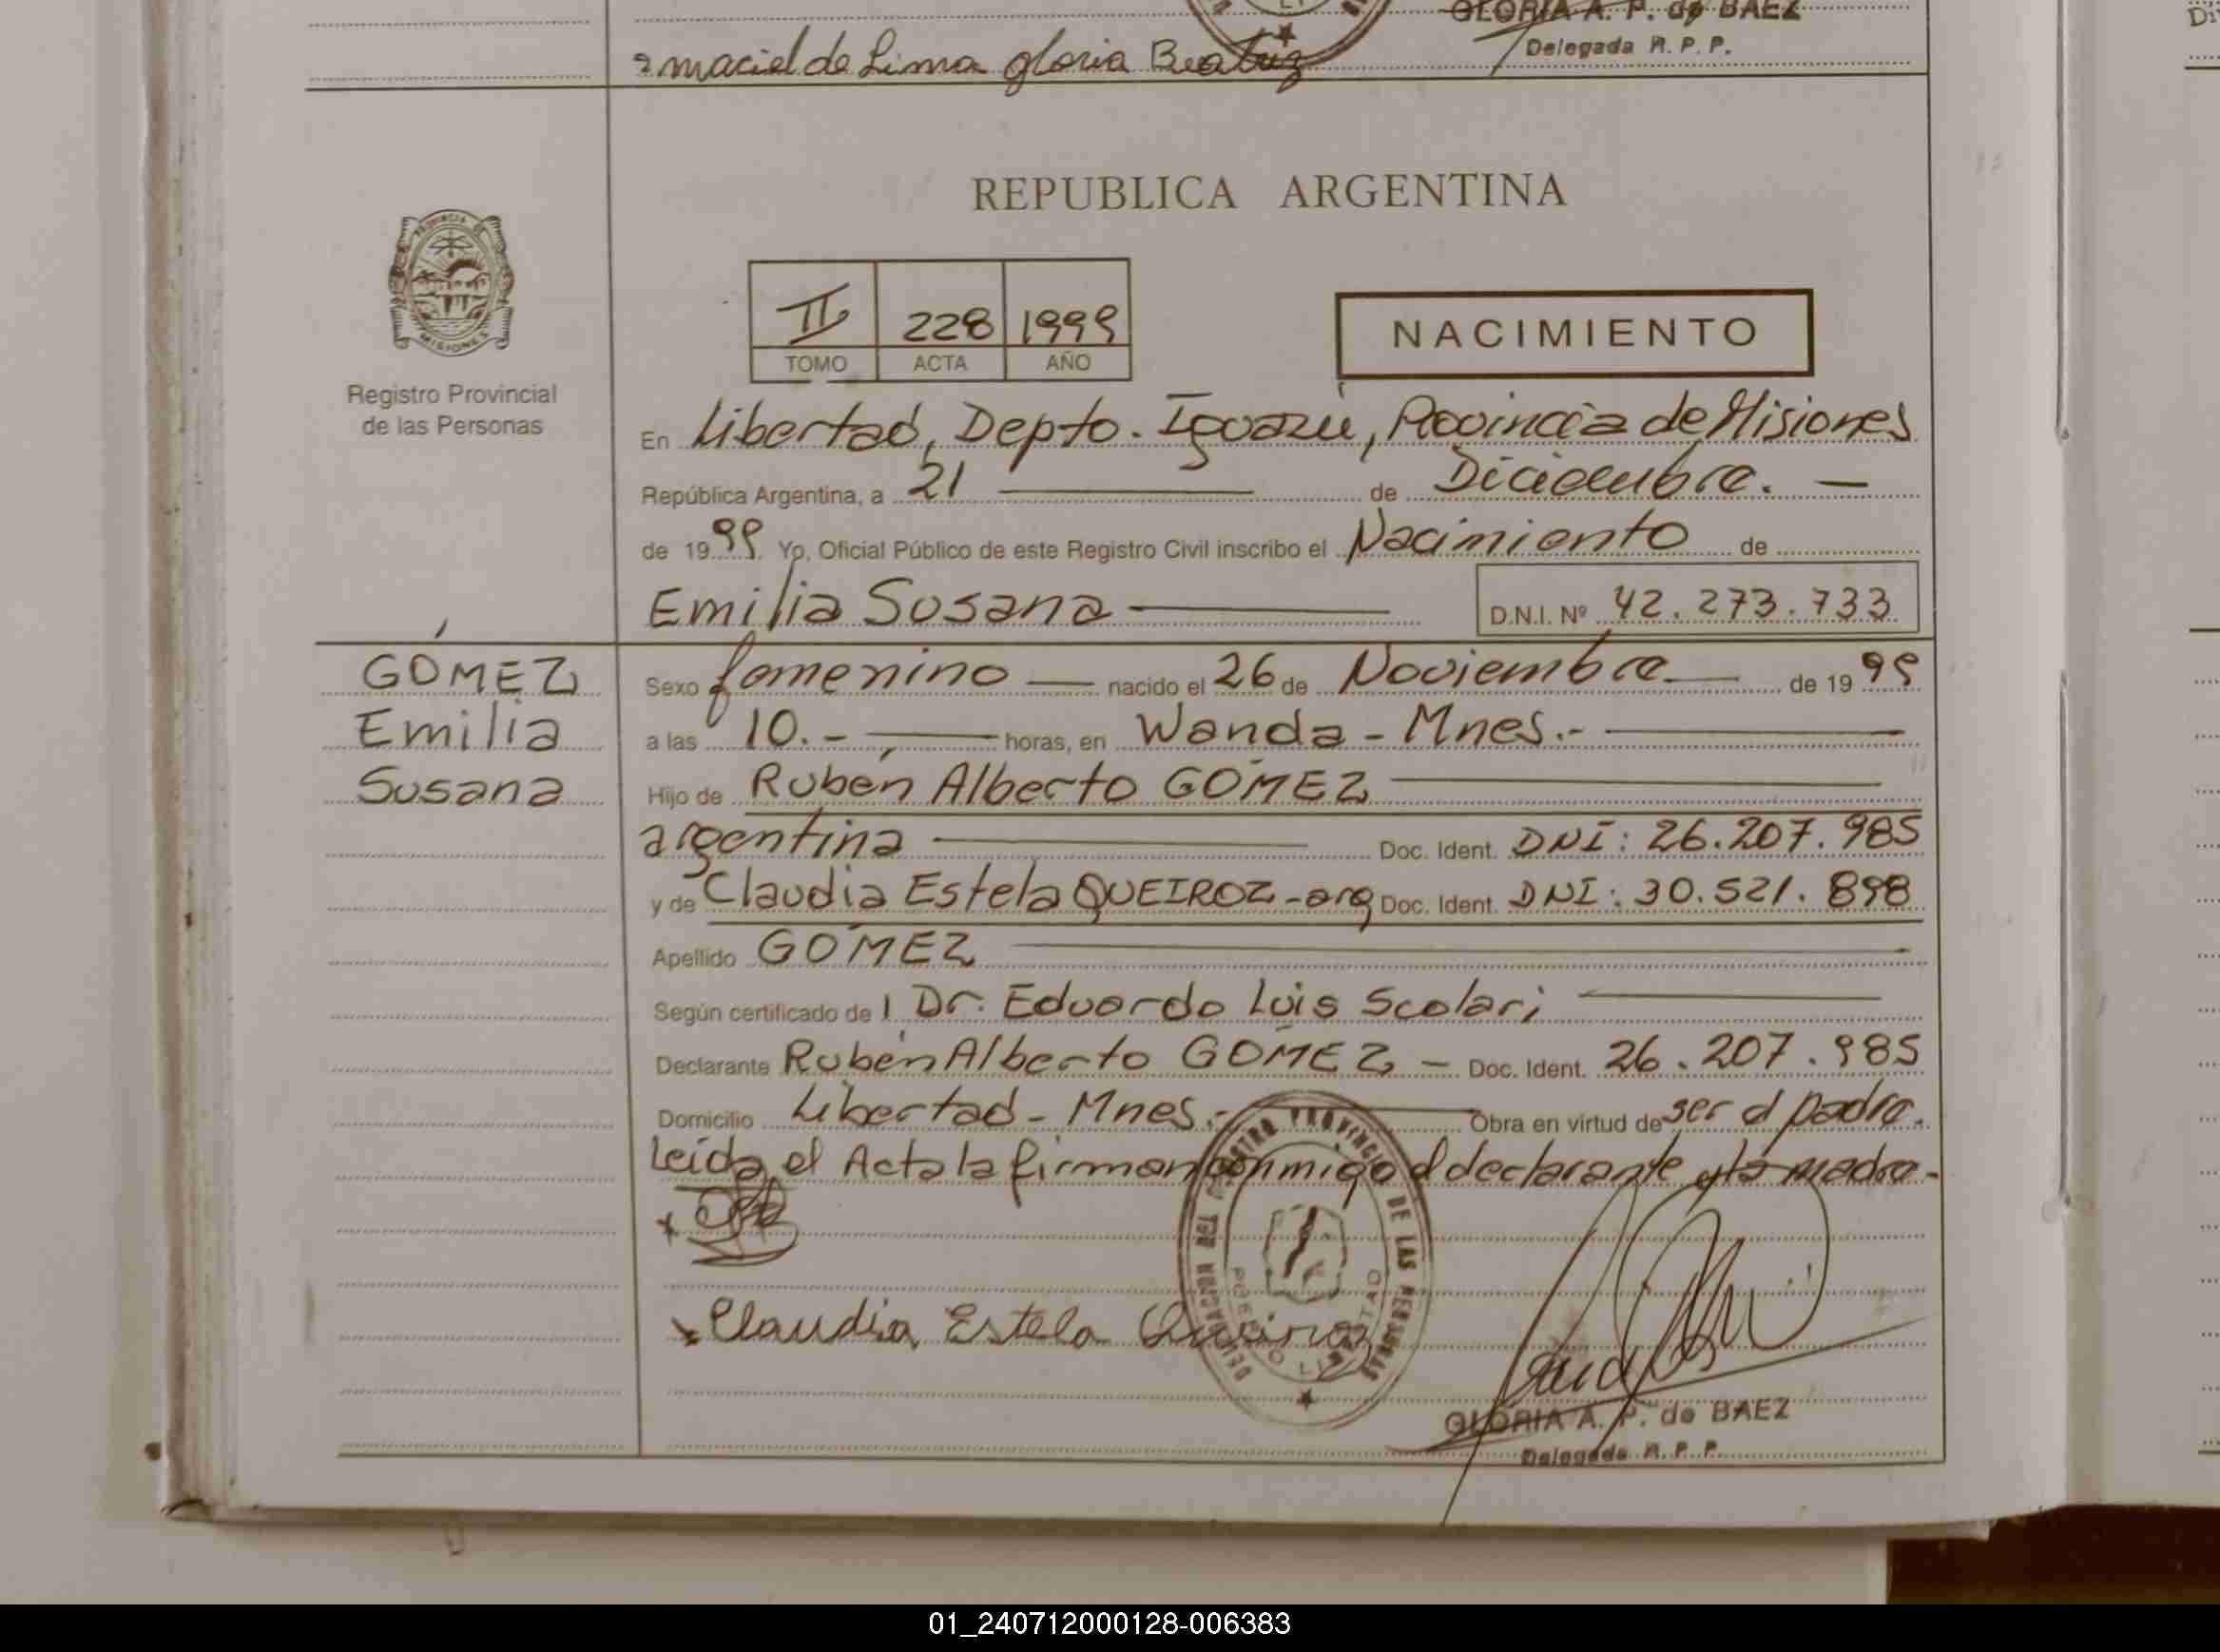 GLORIA A. P. de BAEZ
Delegada R. P. P.
maciel de Lima gloria Beatriz
REPUBLICA ARGENTINA
PROVINCIA DE
MISIONES
Registro Provincial
de las Personas
II 228 1999
TOMO ACTA AÑO
NACIMIENTO
En Libertad, Depto. Iguazú, Provincia de Misiones
República Argentina, a 21 de Diciembre. -
de 1999 Yo, Oficial Público de este Registro Civil inscribo el Nacimiento de
Emilia Susana D.N.I. Nº 42.273.733
GÓMEZ
Emilia
Susana
Sexo femenino nacido el 26 de Noviembre de 1999
a las 10.- horas, en Wanda - Mnes.-
Hijo de Rubén Alberto GÓMEZ
argentina Doc. Ident. DNI: 26.207.985
y de Claudia Estela QUEIROZ - arg Doc. Ident. DNI: 30.521.898
Apellido GÓMEZ
Según certificado de l Dr. Eduardo Luis Scolari
Declarante Rubén Alberto GÓMEZ - Doc. Ident. 26.207.985
Domicilio Libertad - Mnes.- Obra en virtud de ser el padre.
Leída el Acta la firman conmigo el declarante y la madre-
Claudia Estela Queiroz
DELEGACION DEL REGISTRO PROVINCIAL DE LAS PERSONAS
PUERTO LIBERTAD
GLORIA A. P. de BAEZ
Delegada R. P. P.
01_240712000128-006383